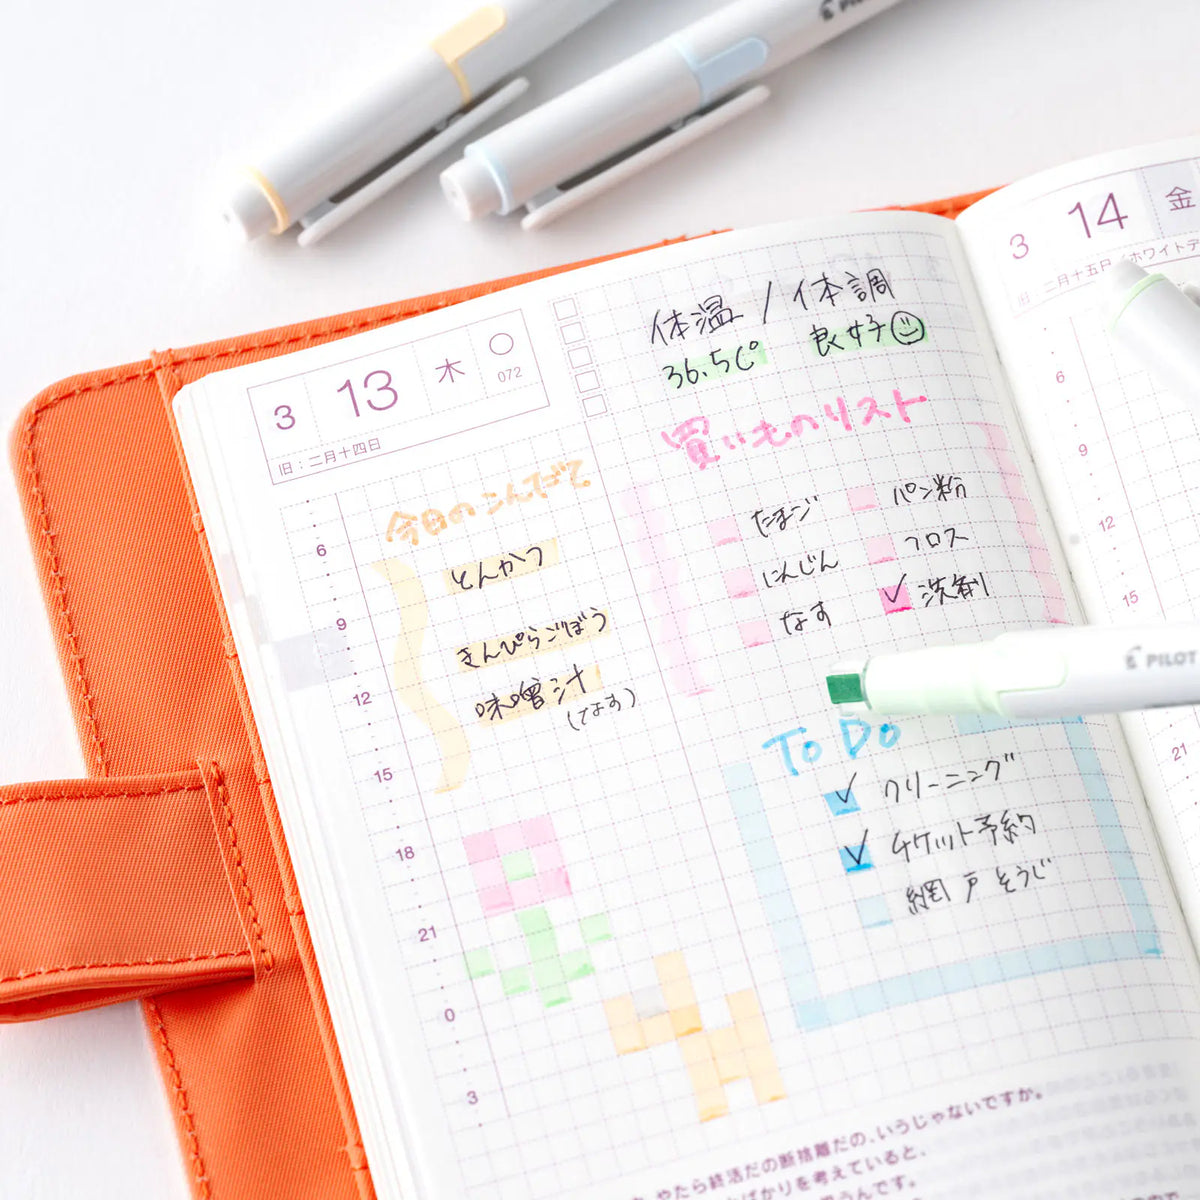 PILOT
3 13 木 072
旧：二月十四日
体温 / 体調
36.5℃ 良好
買いものリスト
たまご
にんじん
なす
パン粉
フロス
洗剤
今日のこんだて
とんかつ
きんぴらごぼう
味噌汁
(なす)
To Do
クリーニング
チケット予約
網戸そうじ
6
9
12
15
18
21
0
3
やたら終活だの断捨離だの、いうじゃないですか。
ばかりを考えていると、
うんです。
3 14 金
旧：二月十五日／ホワイトデ
6
9
12
15
21
PILOT